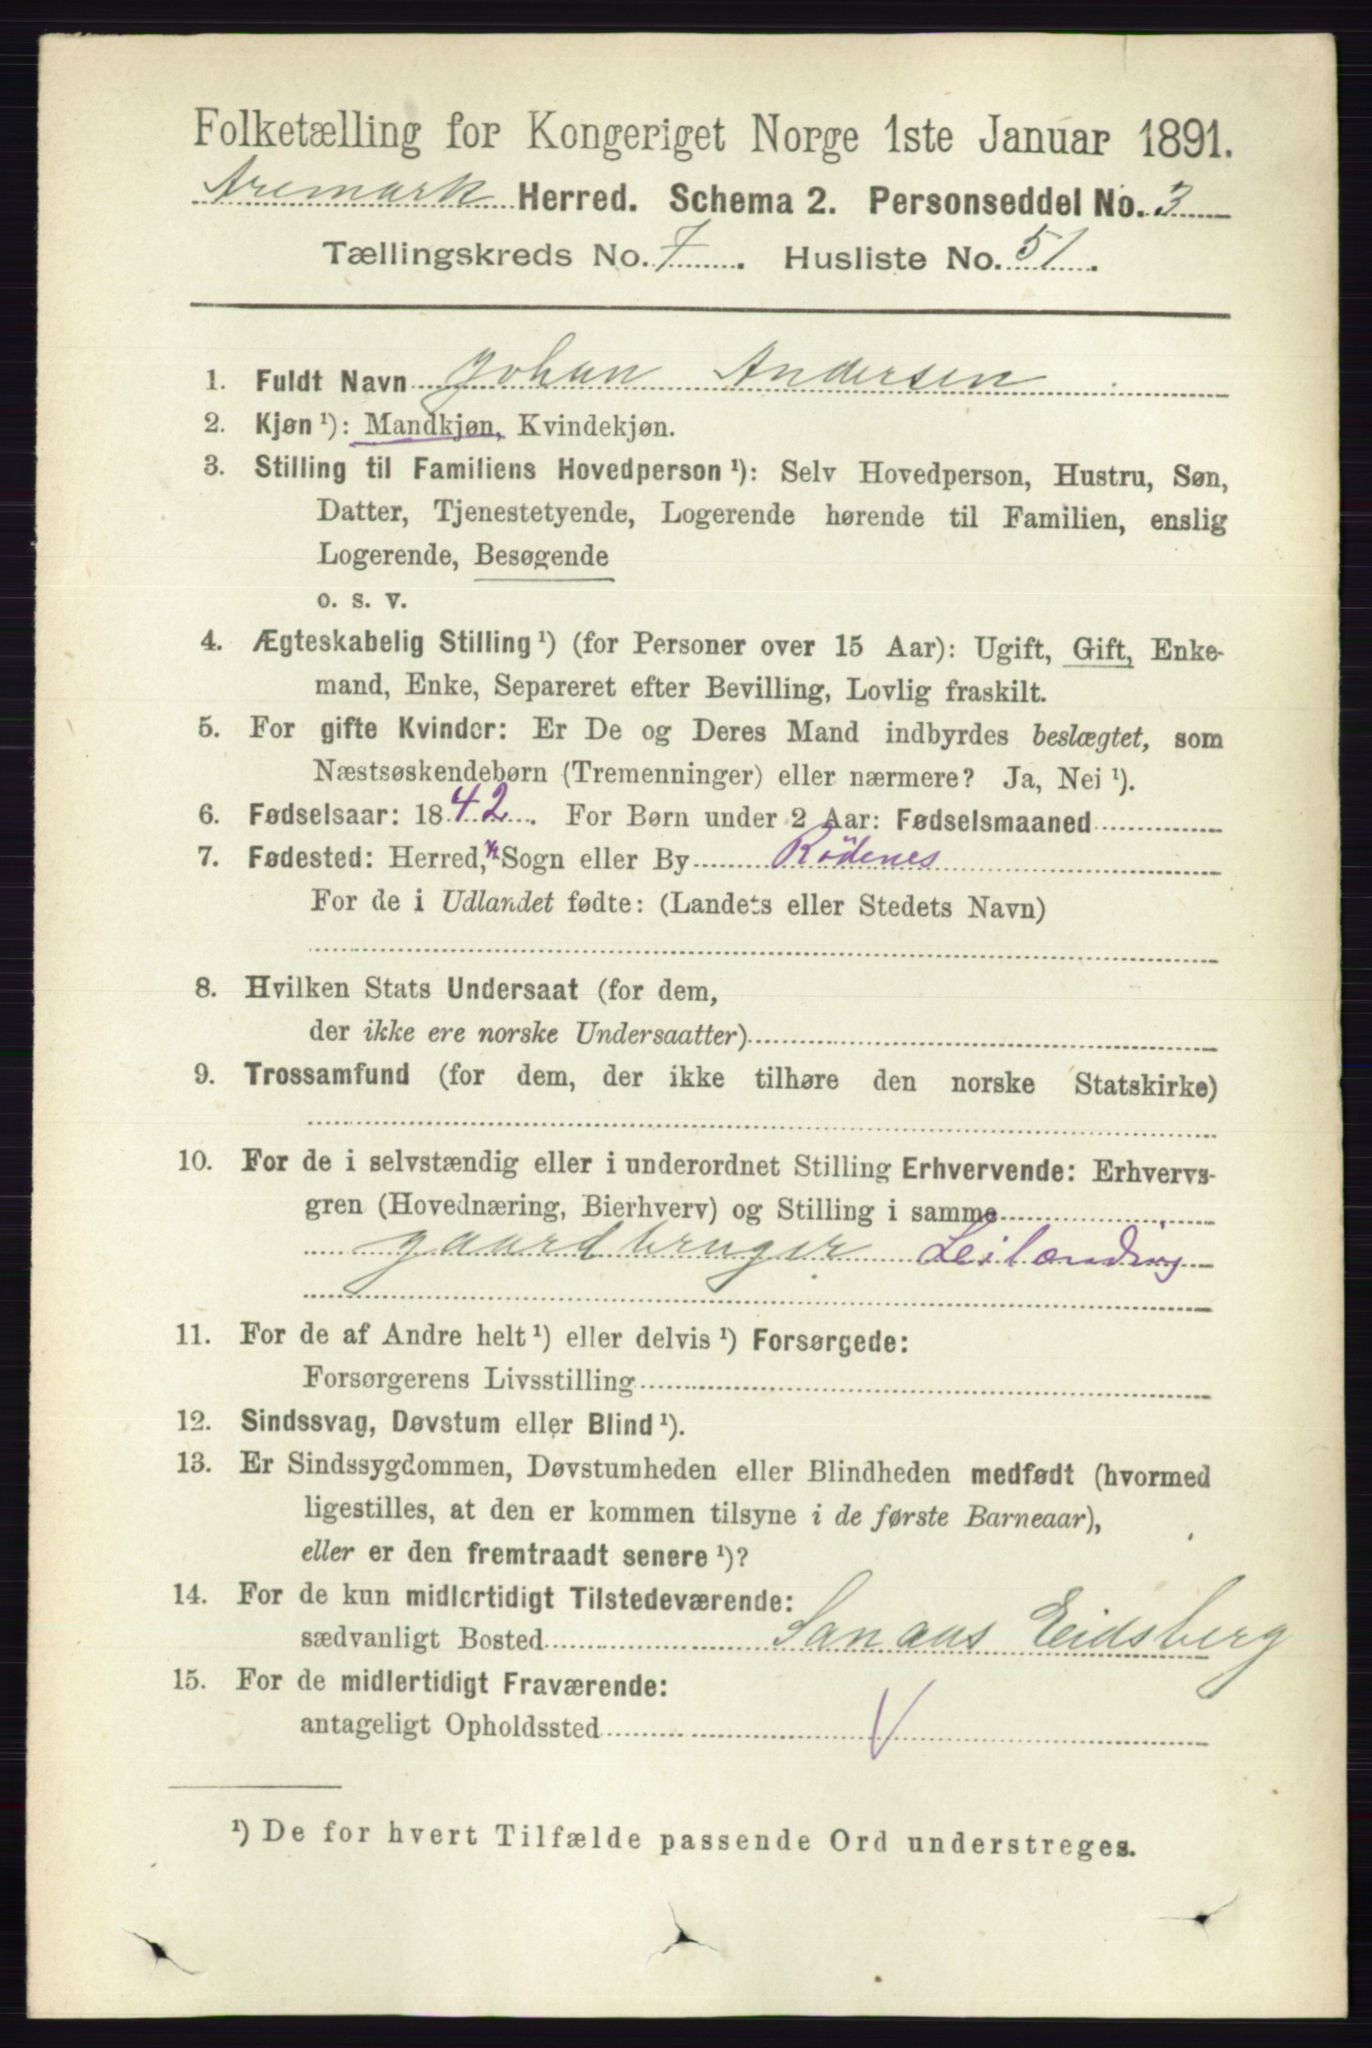 Folketælling for Kongeriget Norge 1ste Januar 1891.
Aremark Herred. Schema 2. Personseddel No. 3
Tællingskreds No. 7. Husliste No. 51.
1. Fuldt Navn Johan Andersen
2. Kjøn ¹): Mandkjøn, Kvindekjøn.
3. Stilling til Familiens Hovedperson ¹): Selv Hovedperson, Hustru, Søn,
Datter, Tjenestetyende, Logerende hørende til Familien, enslig
Logerende, Besøgende
o. s. v.
4. Ægteskabelig Stilling ¹) (for Personer over 15 Aar): Ugift, Gift, Enke-
mand, Enke, Separeret efter Bevilling, Lovlig fraskilt.
5. For gifte Kvinder: Er De og Deres Mand indbyrdes beslægtet, som
Næstsøskendebørn (Tremenninger) eller nærmere? Ja, Nei ¹).
6. Fødselsaar: 1842. For Børn under 2 Aar: Fødselsmaaned
7. Fødested: Herred, Sogn eller By Rödenes
For de i Udlandet fødte: (Landets eller Stedets Navn)
8. Hvilken Stats Undersaat (for dem,
der ikke ere norske Undersaatter)
9. Trossamfund (for dem, der ikke tilhøre den norske Statskirke)
10. For de i selvstændig eller i underordnet Stilling Erhvervende: Erhvervs-
gren (Hovednæring, Bierhverv) og Stilling i samme
gaardbruger Leilænding
11. For de af Andre helt ¹) eller delvis ¹) Forsørgede:
Forsørgerens Livsstilling
12. Sindssvag, Døvstum eller Blind ¹).
13. Er Sindssygdommen, Døvstumheden eller Blindheden medfødt (hvormed
ligestilles, at den er kommen tilsyne i de første Barneaar),
eller er den fremtraadt senere ¹)?
14. For de kun midlertidigt Tilstedeværende:
sædvanligt Bosted Eidsberg
15. For de midlertidigt Fraværende:
antageligt Opholdssted
¹) De for hvert Tilfælde passende Ord understreges.